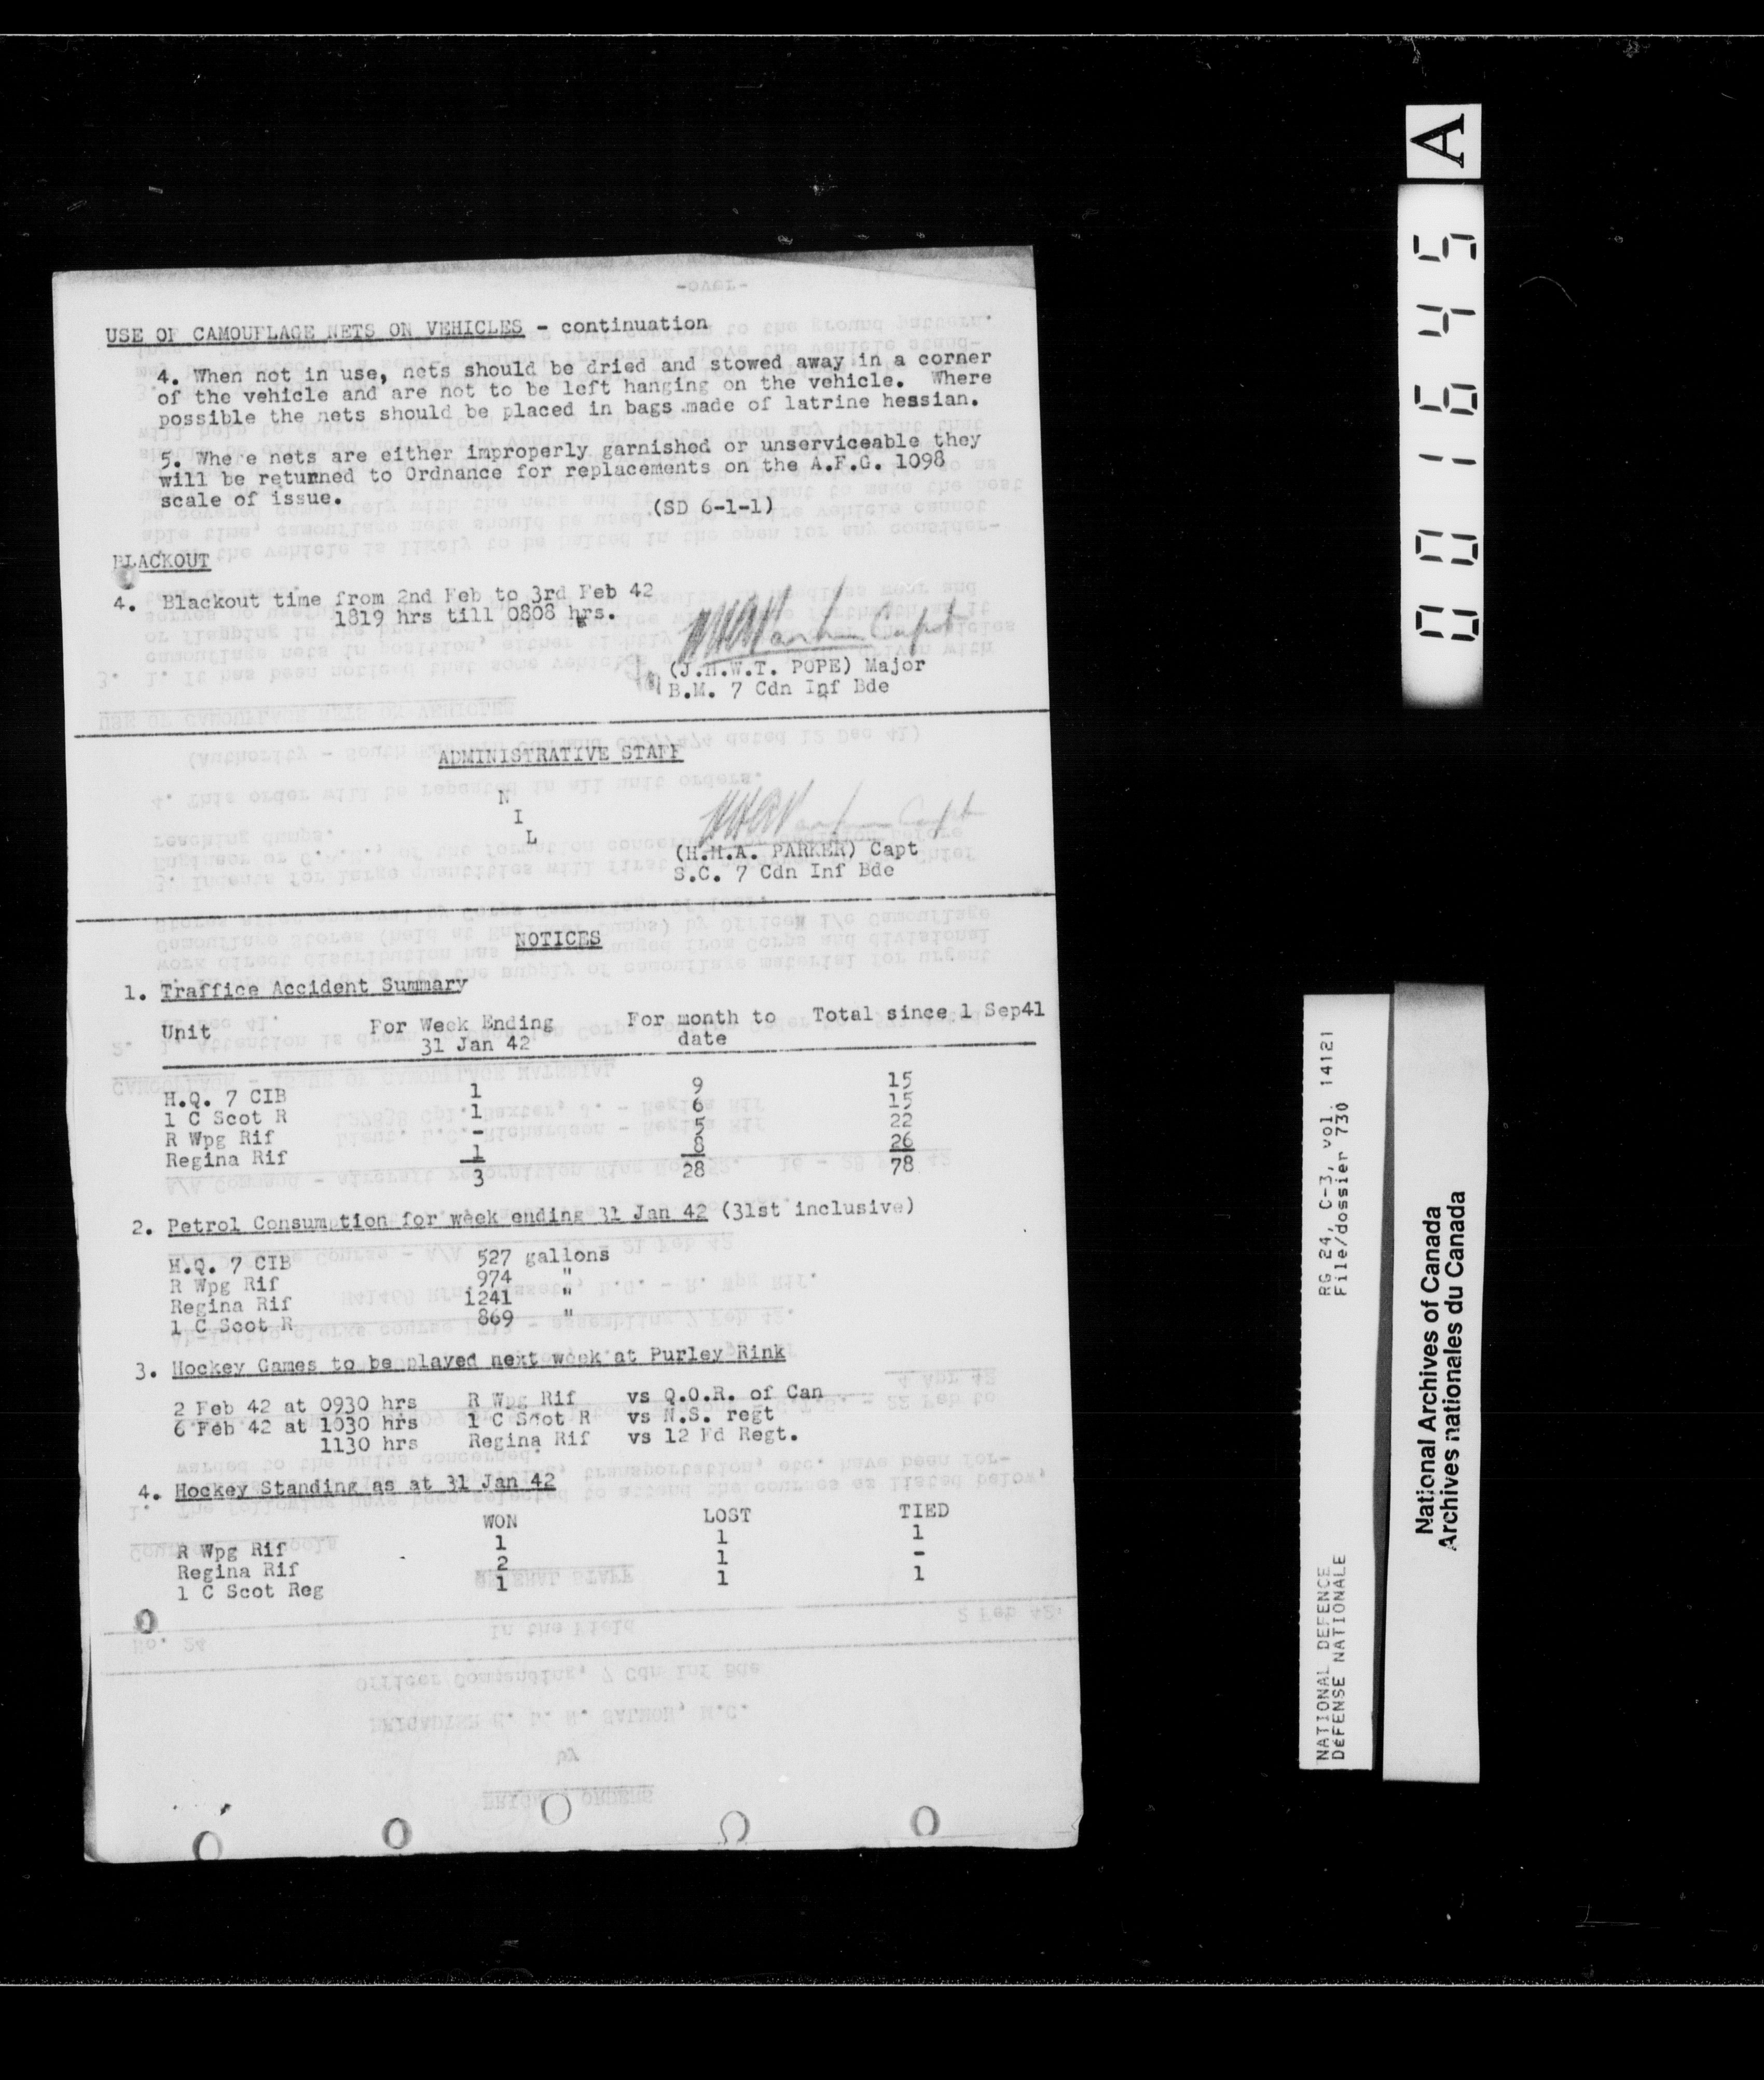 USE OF CAMOUFLAGE NETS ON VEHICLES - continuation
4. When not in use, nets should be dried and stowed away in a corner
of the vehicle and are not to be left hanging on the vehicle. Where
possible the nets should be placed in bags made of latrine hessian.
5. Where nets are either improperly garnished or unserviceable they
will be returned to Ordnance for replacements on the A.F.G. 1098
scale of issue. (SD 6-1-1)
BLACKOUT
4. Blackout time from 2nd Feb to 3rd Feb 42
1819 hrs till 0808 hrs.
Capt
(J.H.W.T. POPE) Major
B.M. 7 Cdn Inf Bde
ADMINISTRATIVE STAFF
N
I
L
Capt
(H.M.A. PARKER) Capt
S.C. 7 Cdn Inf Bde
NOTICES
1. Traffice Accident Summary
Unit For Week Ending For month to Total since 1 Sep41
31 Jan 42 date
H.Q. 7 CIB 1 9 15
1 C Scot R 1 6 15
R Wpg Rif - 5 22
Regina Rif 1 8 26
3 28 78
2. Petrol Consumption for week ending 31 Jan 42 (31st inclusive)
H.Q. 7 CIB 527 gallons
R Wpg Rif 974 "
Regina Rif 1241 "
1 C Scot R 869 "
3. Hockey Games to be played next week at Purley Rink
2 Feb 42 at 0930 hrs R Wpg Rif vs Q.O.R. of Can
6 Feb 42 at 1030 hrs 1 C Scot R vs N.S. regt
1130 hrs Regina Rif vs 12 Fd Regt.
4. Hockey Standing as at 31 Jan 42
WON LOST TIED
R Wpg Rif 1 1 1
Regina Rif 2 1 -
1 C Scot Reg 1 1 1
A
001645
RG 24, C-3, vol. 14121
File/dossier 730
NATIONAL DEFENCE
DEFENSE NATIONALE
National Archives of Canada
Archives nationales du Canada